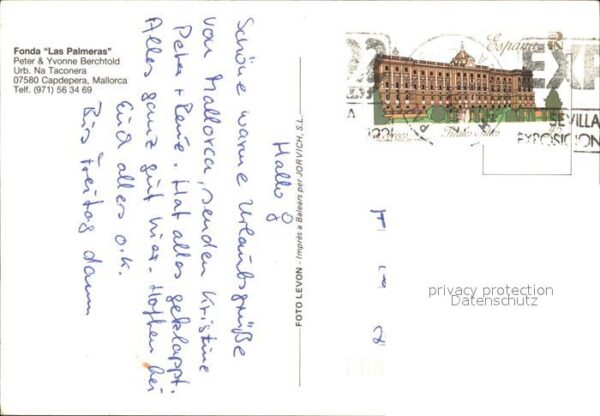 Fonda "Las Palmeras"
Peter & Yvonne Berchtold
Urb. Na Taconera
07580 Capdepera, Mallorca
Telf. (971) 56 34 69
Hallo
Schöne warme Urlaubsgrüße
von Mallorca, senden Kristine
Peter + René. Hat alles geklappt.
Alles ganz gut hier. Hoffen bei
Euch alles o.k.
Bis Freitag dann
FOTO LEVON - Imprès a Balears per JORVICH, S.L.
España
EXP
SEVILLA
EXPOSICION
privacy protection
Datenschutz